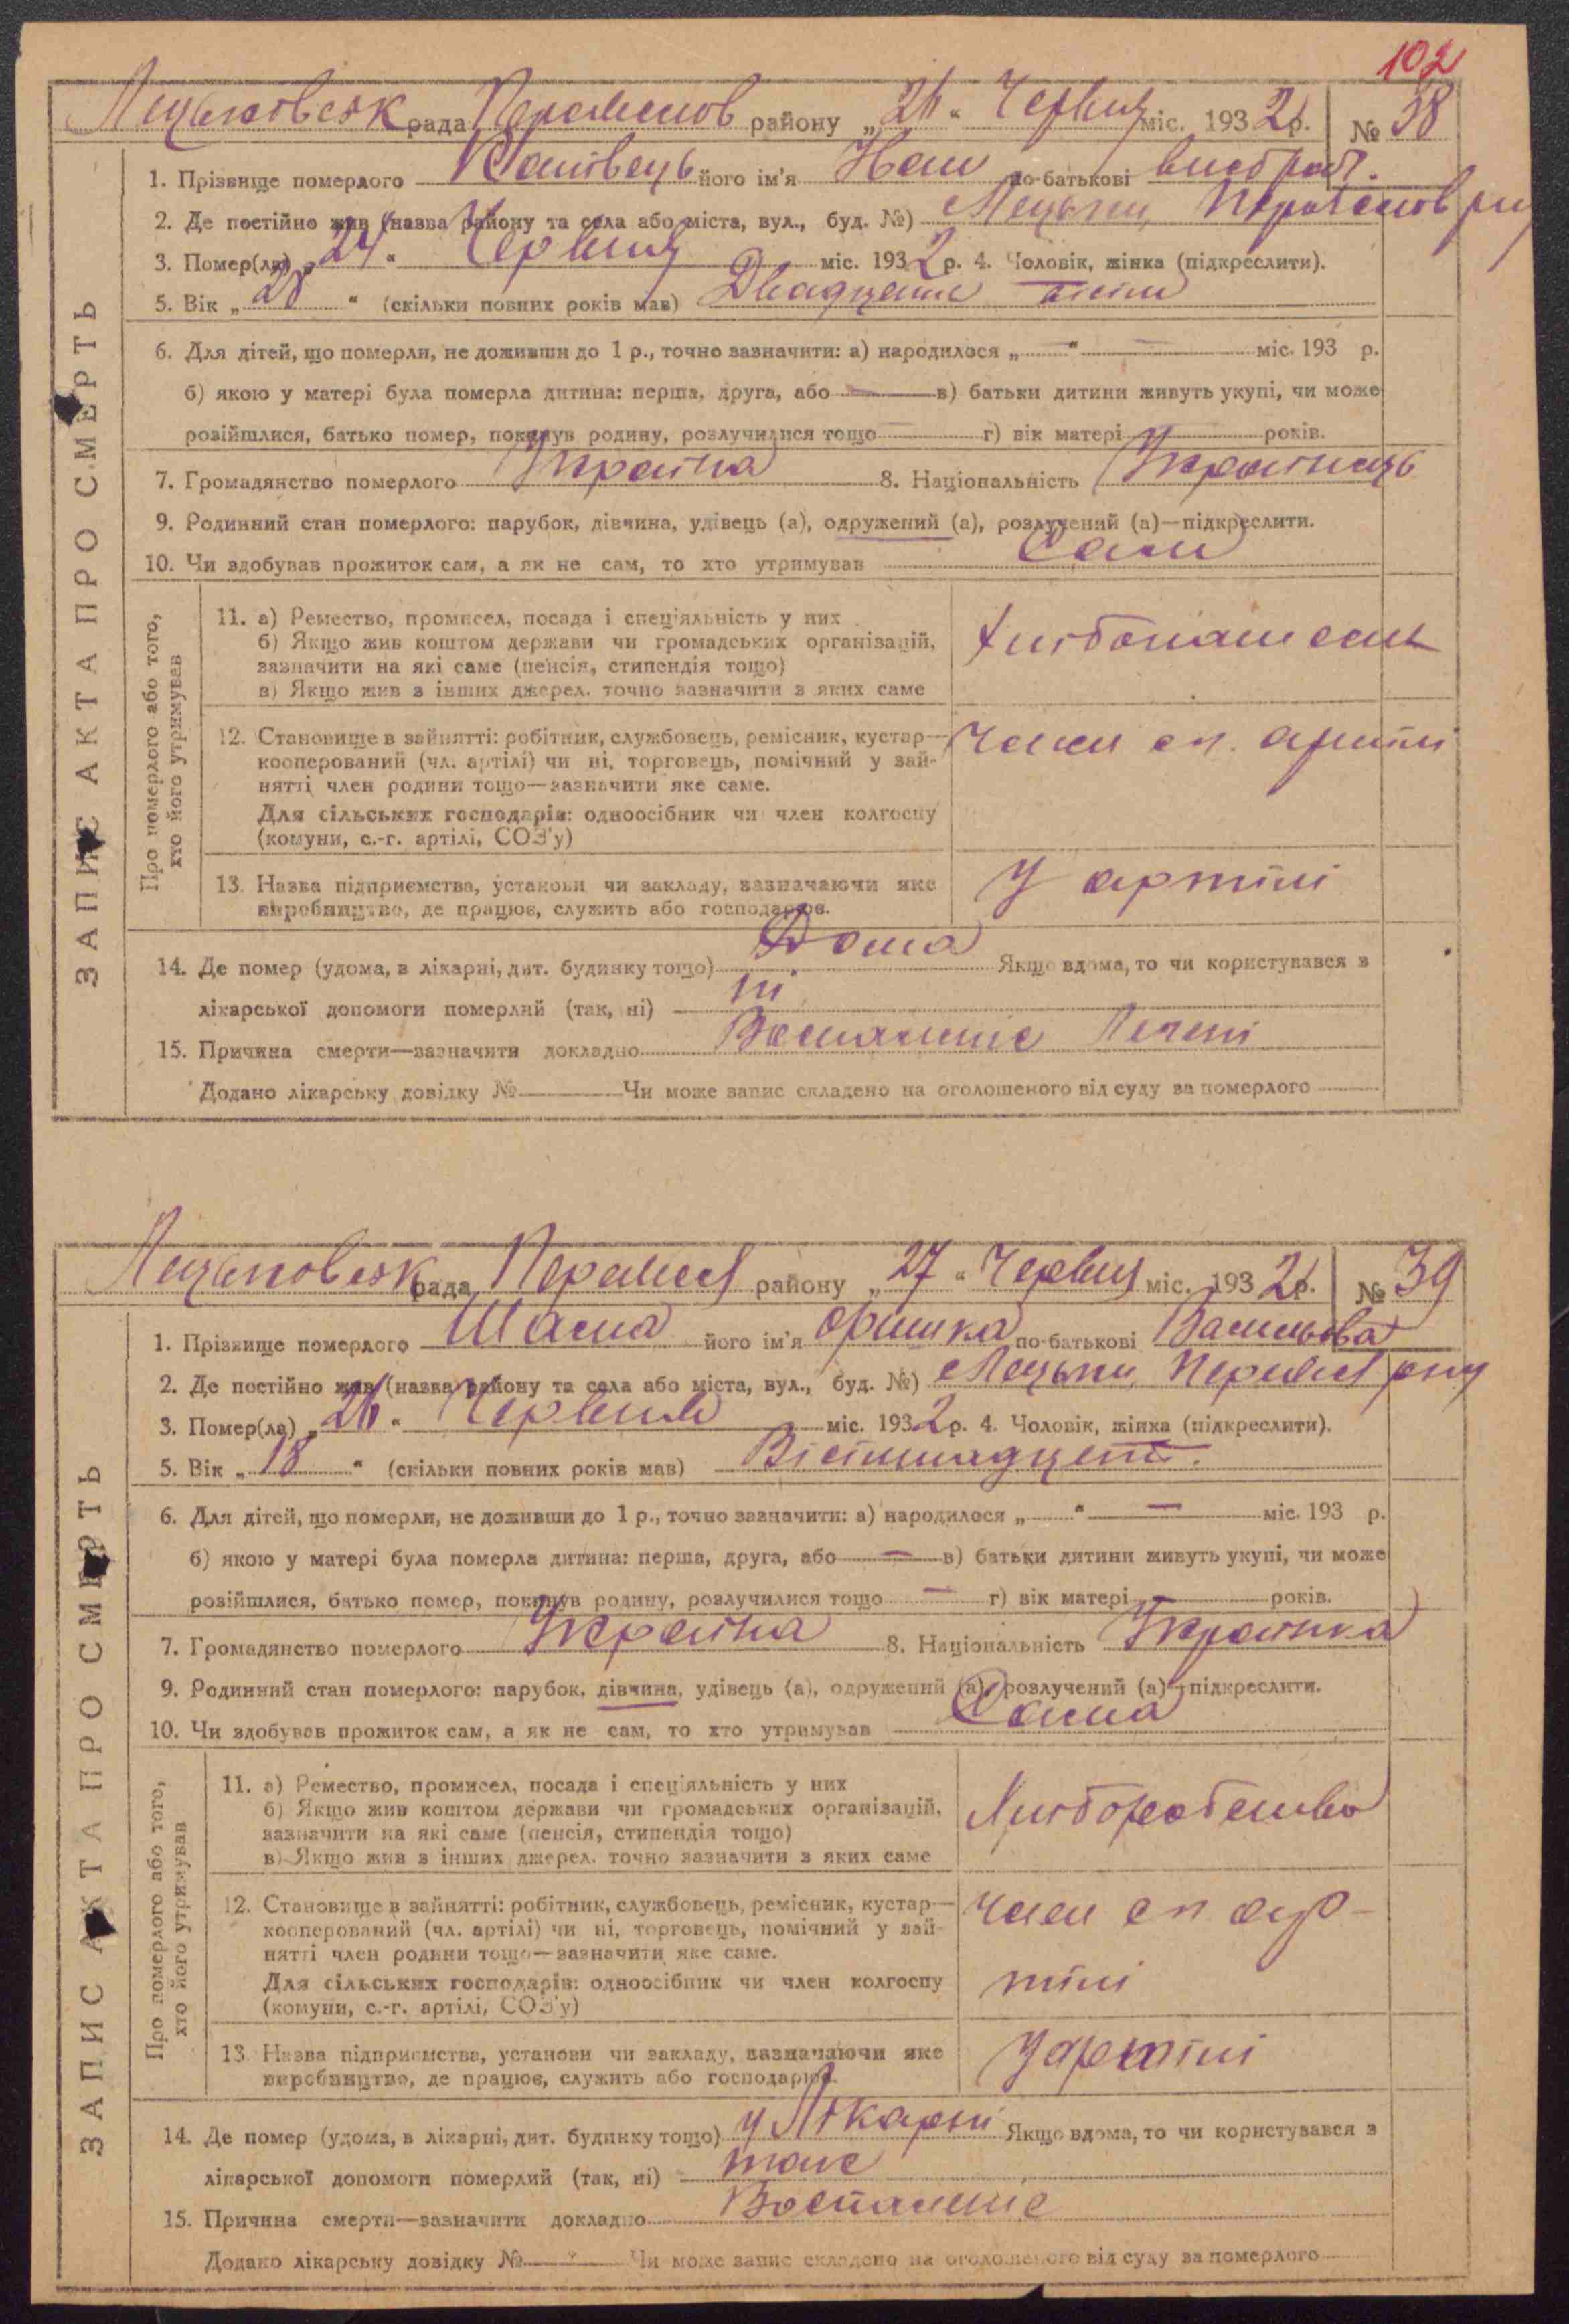 102
рада району „26“ Червня міс. 1932 р. № 38
1. Прізвище померлого його ім'я по-батькові
2. Де постійно жив (назва району та села або міста, вул., буд. №)
3. Помер(ла) „24“ Червня міс. 1932 р. 4. Чоловік, жінка (підкреслити).
5. Вік „28“ (скільки повних років мав) Двадцать
6. Для дітей, що померли, не доживши до 1 р., точно зазначити: а) народилося „ “ — міс. 193 р.
б) якою у матері була померла дитина: перша, друга, або — в) батьки дитини живуть укупі, чи може
розійшлися, батько помер, покинув родину, розлучилися тощо г) вік матері років.
7. Громадянство померлого Україна 8. Національність Українець
9. Родинний стан померлого: парубок, дівчина, удівець (а), одружений (а), розлучений (а)—підкреслити.
10. Чи здобував прожиток сам, а як не сам, то хто утримував Сам
ЗАПИС АКТА ПРО СМЕРТЬ
Про померлого або того, хто його утримував
11. а) Ремество, промисел, посада і спеціяльність у них
б) Якщо жив коштом держави чи громадських організацій,
зазначити на які саме (пенсія, стипендія тощо)
в) Якщо жив з інших джерел, точно зазначити з яких саме
12. Становище в зайнятті: робітник, службовець, ремісник, кустар—
кооперований (чл. артілі) чи ні, торговець, помічний у зай-
нятті член родини тощо—зазначити яке саме.
Для сільських господарів: одноосібник чи член колгоспу
(комуни, с.-г. артілі, СОЗ'у)
член сг. артілі
13. Назва підприємства, установи чи закладу, зазначаючи яке
виробництво, де працює, служить або господарює.
У артілі
14. Де помер (удома, в лікарні, дит. будинку тощо) Дома Якщо вдома, то чи користувався з
лікарської допомоги померлий (так, ні) ні
15. Причина смерти—зазначити докладно Воспаление Печені
Додано лікарську довідку № Чи може запис складено на оголошеного від суду за померлого
рада району „27“ Червня міс. 1932 р. № 39
1. Прізвище померлого Шама його ім'я Оришка по-батькові Васильова
2. Де постійно жив (назва району та села або міста, вул., буд. №)
3. Помер(ла) „26“ Червня міс. 1932 р. 4. Чоловік, жінка (підкреслити).
5. Вік „18“ (скільки повних років мав) Вісімнадцять
6. Для дітей, що померли, не доживши до 1 р., точно зазначити: а) народилося „ “ — міс. 193 р.
б) якою у матері була померла дитина: перша, друга, або — в) батьки дитини живуть укупі, чи може
розійшлися, батько помер, покинув родину, розлучилися тощо — г) вік матері років.
7. Громадянство померлого Україна 8. Національність Українка
9. Родинний стан померлого: парубок, дівчина, удівець (а), одружений (а), розлучений (а)—підкреслити.
10. Чи здобував прожиток сам, а як не сам, то хто утримував Сама
ЗАПИС АКТА ПРО СМЕРТЬ
Про померлого або того, хто його утримував
11. а) Ремество, промисел, посада і спеціяльність у них
б) Якщо жив коштом держави чи громадських організацій,
зазначити на які саме (пенсія, стипендія тощо)
в) Якщо жив з інших джерел, точно зазначити з яких саме
12. Становище в зайнятті: робітник, службовець, ремісник, кустар—
кооперований (чл. артілі) чи ні, торговець, помічний у зай-
нятті член родини тощо—зазначити яке саме.
Для сільських господарів: одноосібник чи член колгоспу
(комуни, с.-г. артілі, СОЗ'у)
член сг. ар-
тілі
13. Назва підприємства, установи чи закладу, зазначаючи яке
виробництво, де працює, служить або господарює.
У артілі
14. Де помер (удома, в лікарні, дит. будинку тощо) у Лікарні Якщо вдома, то чи користувався з
лікарської допомоги померлий (так, ні) так
15. Причина смерти—зазначити докладно Воспаление
Додано лікарську довідку № Чи може запис складено на оголошеного від суду за померлого